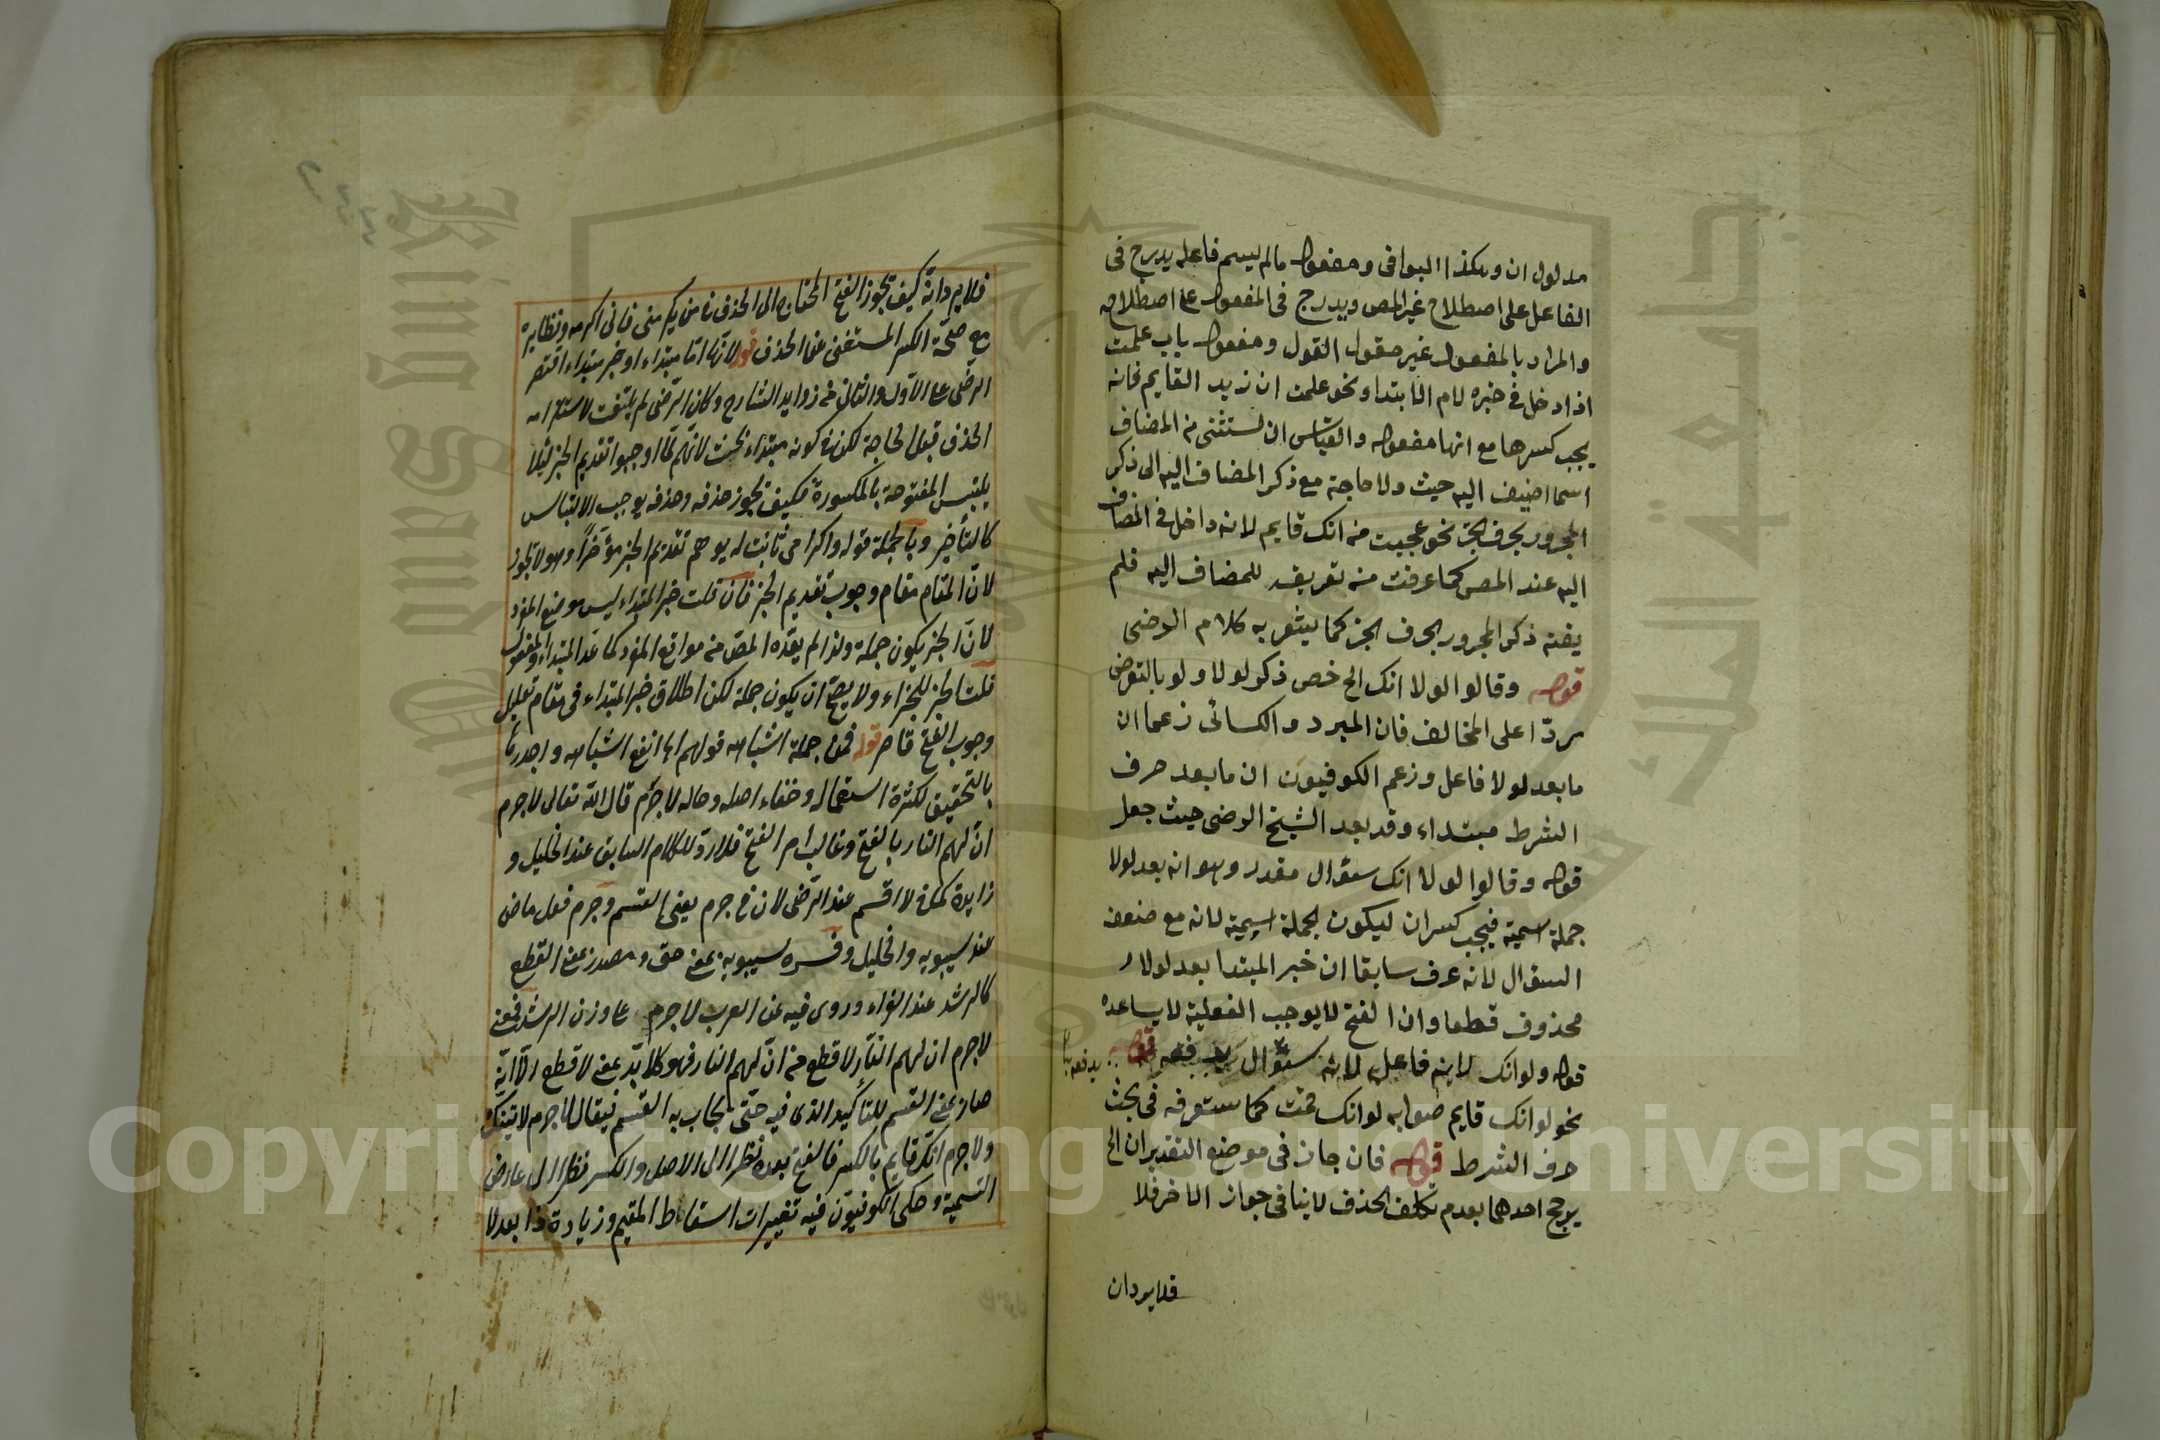 مدلول ان وهكذا البواقى ومفعول مالم يسم فاعله يدرج فى
الفاعل على اصطلاح غير المص ويدرج فى المفعول على اصطلاحه
والمراد بالمفعول غير مقول القول ومفعول باب علمت
اذا دخل فى خبره لام الابتداء نحو علمت ان زيد القايم فانه
يجب كسرها مع انها مفعوله والقياس ان تستثنى من المضاف
اسما اضيف اليه حيث ولا حاجة مع ذكر المضاف اليه الى ذكر
المجرور بحرف الجر نحو عجبت من انك قايم لانه داخل فى المضاف
اليه عند المص كما عرفت من تعريف للمضاف اليه فلم
يفته ذكر المجرور بحرف الجر كما يشعر به كلام الرضى
قوله وقالوا لولا انك الخ خص ذكر لولا ولو بالتعرض
ردّا على المخالف فان المبرد والكسائى زعما ان
ما بعد لولا فاعل وزعم الكوفيون ان ما بعد حرف
الشرط مبتداء وقد بعد الشيخ الرضى حيث جعل
قوله وقالوا لولا انك سؤال مقدر وهو انه بعد لولا
جملة اسمية فيجب كسران ليكون لجملة اسمية لانه مع ضعف
السؤال لانه عرف سابقا ان خبر المبتدا بعد لولا
محذوف قطعا وان الفتح لا يوجب الفعلية لا يساعده
قوله ولو انك لانه فاعل لانه سؤال قوله
نحو لو انك قايم صوابه لو انك قمت كما ستعرفه فى بحث
حرف الشرط قوله فان جاز فى موضع التقديران الخ
يرجح احدهما بعدم تكلف الحذف لا ينافى جواز الاخر فلا
فلا يرد ان
فلا يرد انّه كيف يجوز الفتح المحتاج الى الحذف فى من يكرمنى فانى اكرمه ونظايره
مع صحّة الكسر المستغنى عن الحذف قوله لانّها امّا مبتداء او خبر مبتداء اقتصر
الرضى على الاول والثانى من زوايد الشارح وكان الرّضى لم يلتفت لاستلزامه
الحذف قبل الحاجة لكن فى كونه مبتداء بحث لانّهم لمّا اوجبوا تقديم الخبر لئلا
يلتبس المفتوحة بالمكسورة فكيف يجوز حذفه وحذفه يوجب الالتباس
كالتأخير وبالجملة قوله واكرامى ثابت له يوهم تقديم الخبر مؤخراً وهو لا يجوز
لانّ المقام مقام وجوب تقديم الخبر فان قلت خبر المبتداء ليس موضع المفرد
لانّ الخبر يكون جملة ولذا لم يعدّه المصّ من مواقع المفرد كما عدّ المبتداء والمفعول
قلت الخبر للجزاء ولا يصحّ ان يكون جملة لكن اطلاق خبر المبتداء فى مقام تعليل
وجوب الفتح قاصر قوله فمن جملة اشباهه قولهم اما انفع اشباهه واجدرها
بالتحقيق لكثرة استعماله وخفاء اصله وحاله لا جرم قال اللّه تعالى لا جرم
انّ لهم النار بالفتح وغالب امر الفتح فلا ردّ للكلام السابق عند الخليل و
زايدة كما فى لا اقسم عند الرّضى لان فى جرم يعنى القسم وجرم فعل ماض
عند سيبويه والخليل وفسره سيبويه بمعنى حق ومصدر بمعنى القطع
كالرشد عند الفراء وروى فيه عن العرب لا جرم على وزن الرشد فمعنى
لا جرم ان لهم النار لا قطع من انّ لهم النار فهو كلا بدّ بمعنى لا قطع الّا انّه
صار بمعنى القسم للتأكيد الذى فيه حتّى يجاب به القسم فيقال لا جرم لاتينك
ولا جرم انك قايم بالكسر فالفتح بعده نظرا الى الاصل والكسر نظرا الى عارض
القسمية وحكى الكوفيّون فيه تغييرات اسقاط الميم وزيادة ذا بعد لا
Copyright © King Saud University
King Saud University
جامعة الملك سعود